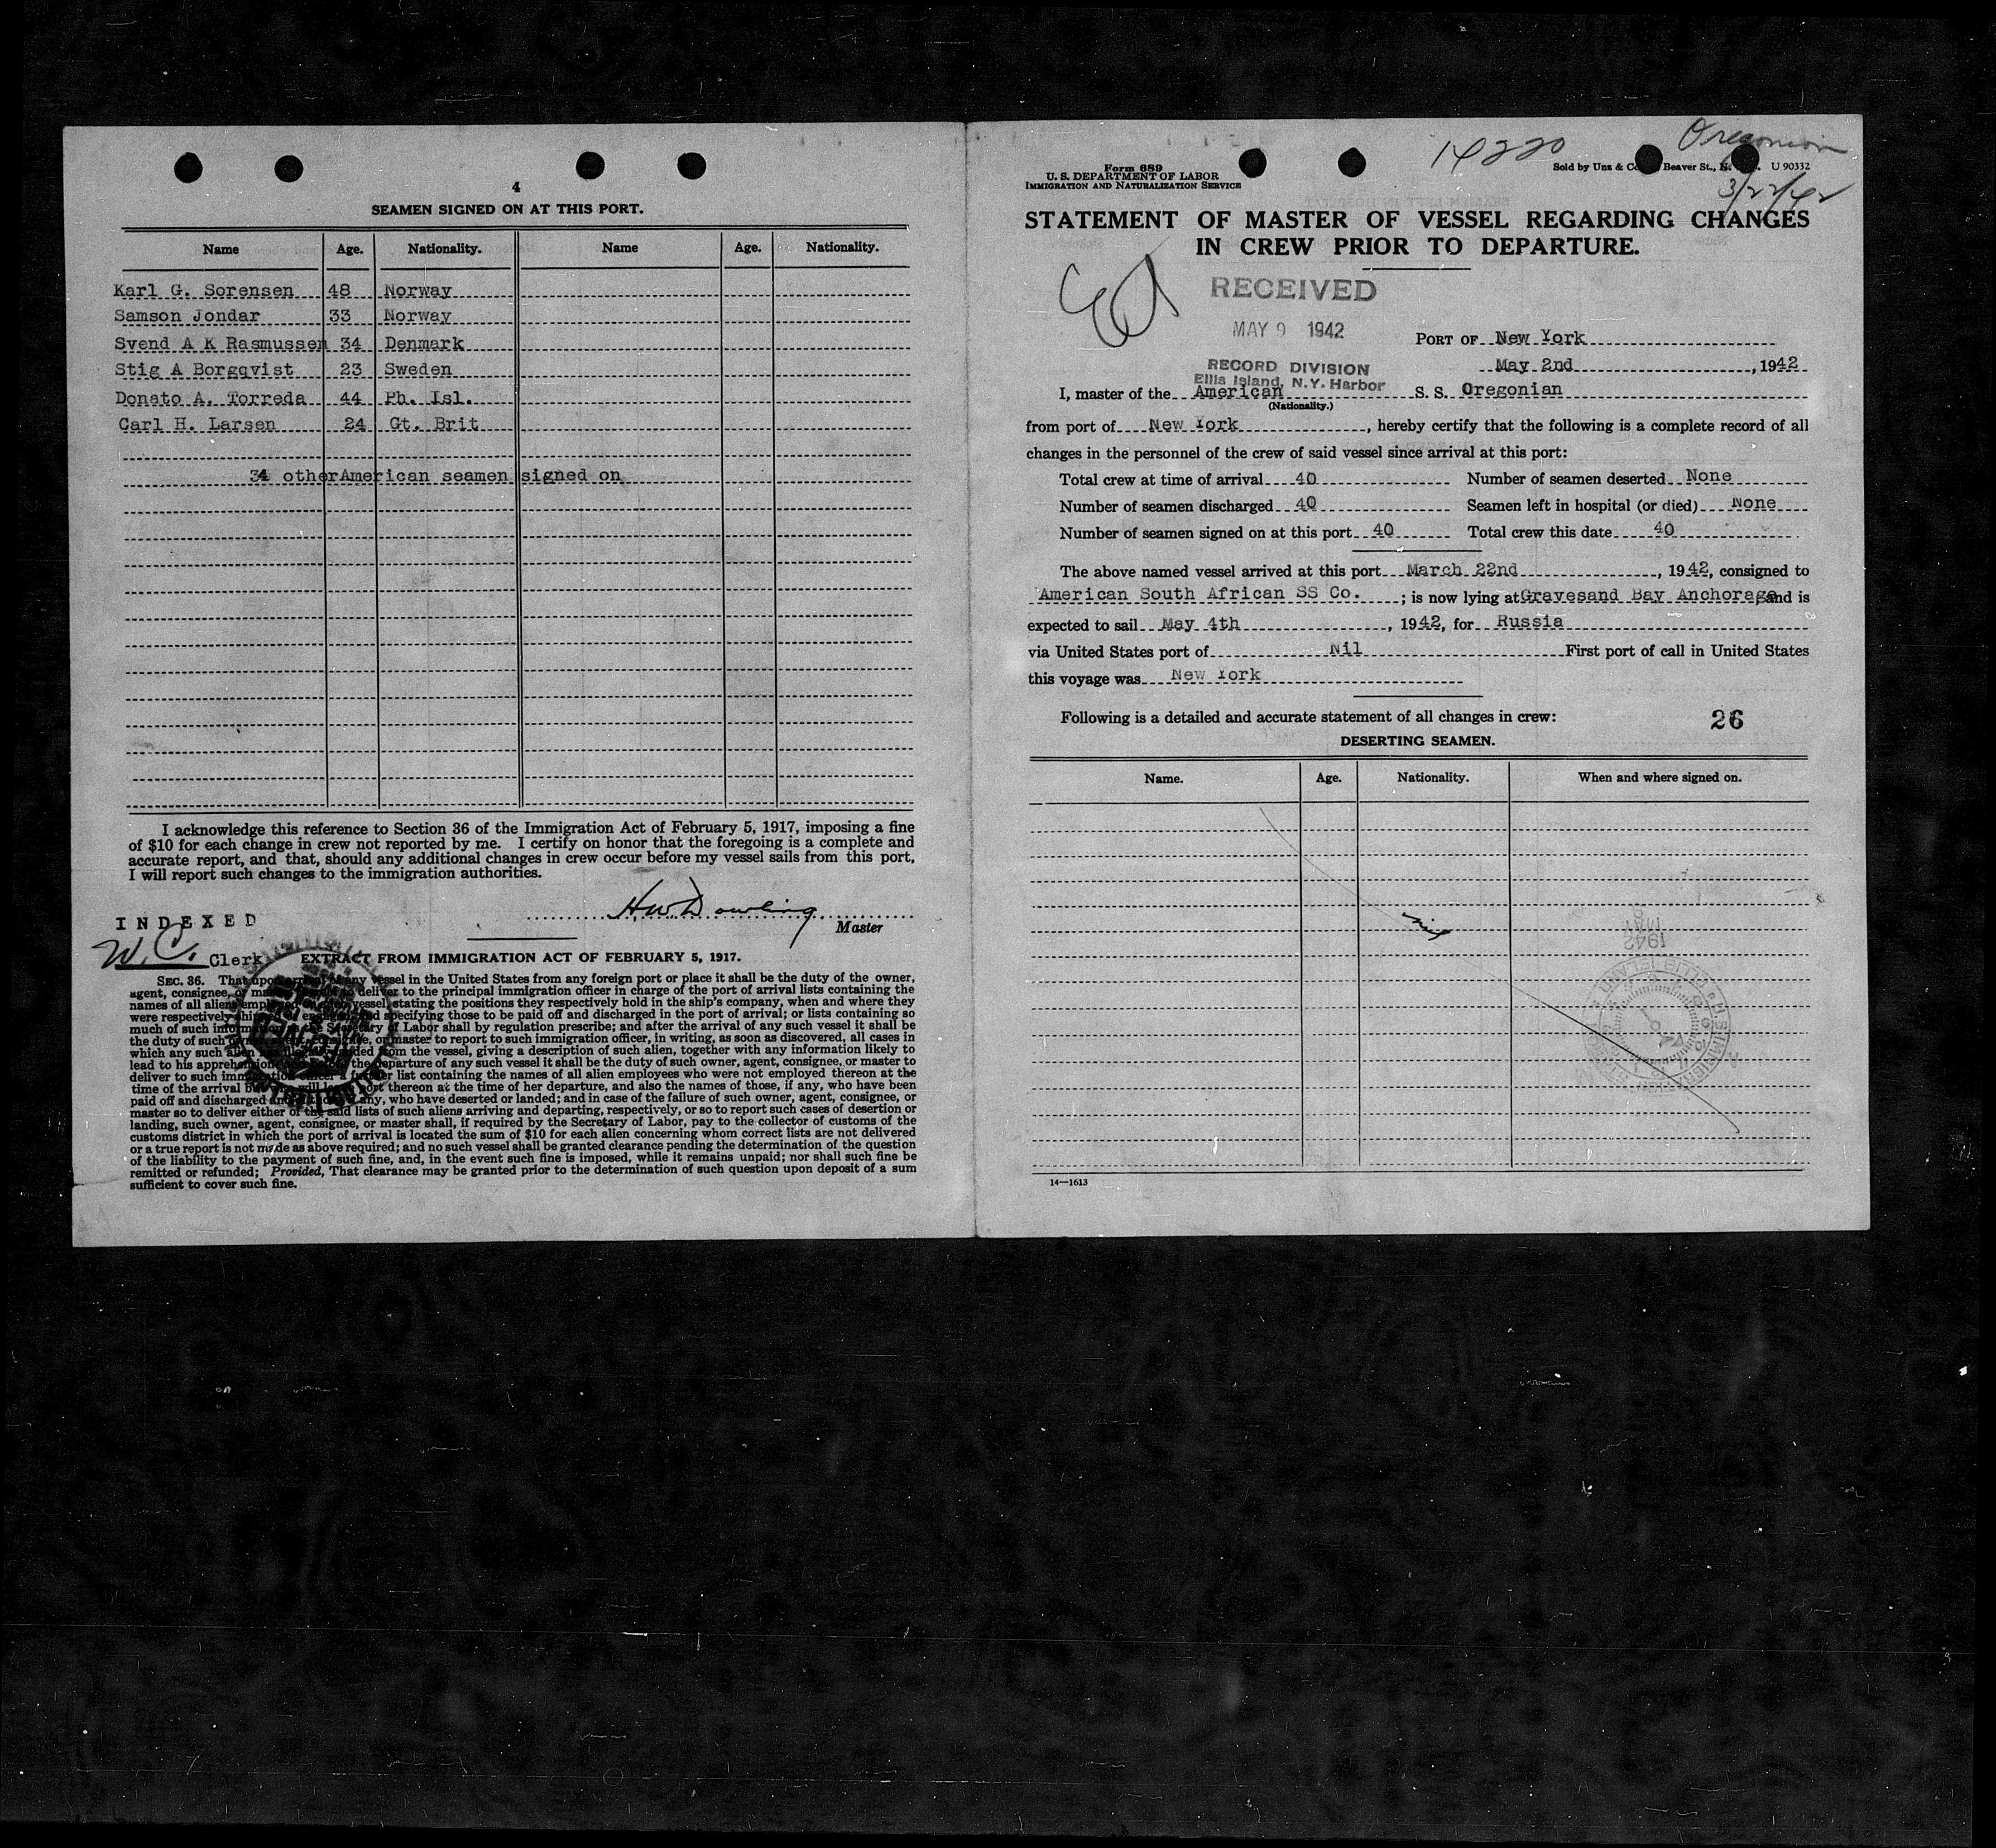 4
SEAMEN SIGNED ON AT THIS PORT.
Name Age. Nationality. Name Age. Nationality.
Karl G. Sorensen 48 Norway
Samson Jondar 33 Norway
Svend A K Rasmussen 34 Denmark
Stig A Borgqvist 23 Sweden
Donato A. Torreda 44 Ph. Isl.
Carl H. Larsen 24 Gt. Brit
34 other American seamen signed on
I acknowledge this reference to Section 36 of the Immigration Act of February 5, 1917, imposing a fine
of $10 for each change in crew not reported by me. I certify on honor that the foregoing is a complete and
accurate report, and that, should any additional changes in crew occur before my vessel sails from this port,
I will report such changes to the immigration authorities.
H W Dowling
Master
INDEXED
W. C. Clerk
EXTRACT FROM IMMIGRATION ACT OF FEBRUARY 5, 1917.
SEC. 36. That upon arrival of any vessel in the United States from any foreign port or place it shall be the duty of the owner,
agent, consignee, or master thereof to deliver to the principal immigration officer in charge of the port of arrival lists containing the
names of all aliens employed on such vessel, stating the positions they respectively hold in the ship's company, when and where they
were respectively shipped or engaged, and specifying those to be paid off and discharged in the port of arrival; or lists containing so
much of such information as the Secretary of Labor shall by regulation prescribe; and after the arrival of any such vessel it shall be
the duty of such owner, agent, consignee, or master to report to such immigration officer, in writing, as soon as discovered, all cases in
which any such alien has illegally landed from the vessel, giving a description of such alien, together with any information likely to
lead to his apprehension; and before the departure of any such vessel it shall be the duty of such owner, agent, consignee, or master to
deliver to such immigration officer a further list containing the names of all alien employees who were not employed thereon at the
time of the arrival but who will leave port thereon at the time of her departure, and also the names of those, if any, who have been
paid off and discharged and of those, if any, who have deserted or landed; and in case of the failure of such owner, agent, consignee, or
master so to deliver either of the said lists of such aliens arriving and departing, respectively, or so to report such cases of desertion or
landing, such owner, agent, consignee, or master shall, if required by the Secretary of Labor, pay to the collector of customs of the
customs district in which the port of arrival is located the sum of $10 for each alien concerning whom correct lists are not delivered
or a true report is not made as above required; and no such vessel shall be granted clearance pending the determination of the question
of the liability to the payment of such fine, and, in the event such fine is imposed, while it remains unpaid; nor shall such fine be
remitted or refunded; Provided, That clearance may be granted prior to the determination of such question upon deposit of a sum
sufficient to cover such fine.
14220
Oregonian
3/22/42
Form 689
U. S. DEPARTMENT OF LABOR
IMMIGRATION AND NATURALIZATION SERVICE
Sold by Unz & Co. Beaver St., N. U 90332
STATEMENT OF MASTER OF VESSEL REGARDING CHANGES
IN CREW PRIOR TO DEPARTURE.
RECEIVED
MAY 9 1942
RECORD DIVISION
Ellis Island, N.Y. Harbor
PORT OF New York
May 2nd, 1942
I, master of the American S. S. Oregonian
(Nationality.)
from port of New York, hereby certify that the following is a complete record of all
changes in the personnel of the crew of said vessel since arrival at this port:
Total crew at time of arrival 40 Number of seamen deserted None
Number of seamen discharged 40 Seamen left in hospital (or died) None
Number of seamen signed on at this port 40 Total crew this date 40
The above named vessel arrived at this port March 22nd, 1942, consigned to
American South African SS Co.; is now lying at Gravesand Bay Anchorage and is
expected to sail May 4th, 1942, for Russia
via United States port of Nil First port of call in United States
this voyage was New York
Following is a detailed and accurate statement of all changes in crew:
26
DESERTING SEAMEN.
Name. Age. Nationality. When and where signed on.
nil
1942
14—1613